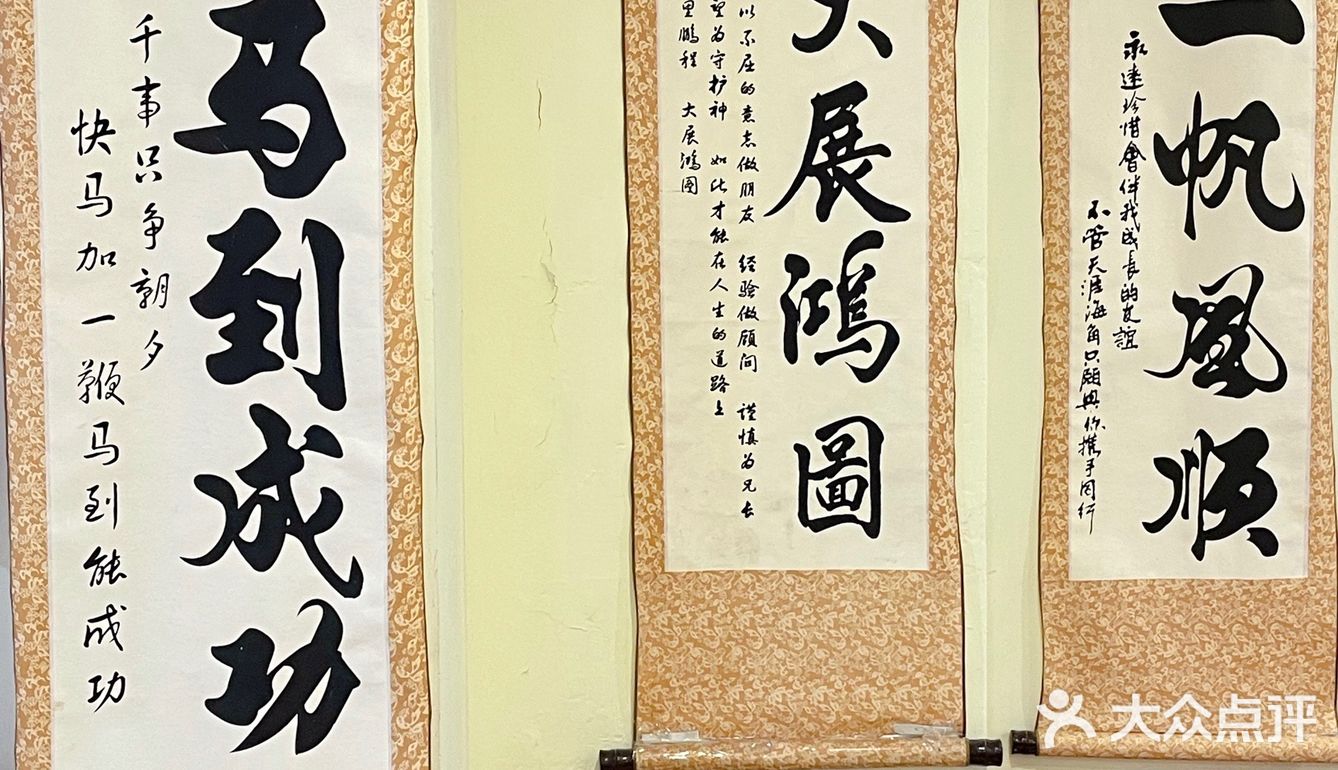 一帆風順
永遠珍惜會伴我成長的友誼
不管天涯海角只願與你携手同行
大展鴻圖
以不屈的意志做朋友 经验做顾问 谨慎为兄长
望为守护神 如此才能在人生的道路上
里鹏程 大展鸿图
马到成功
千事只争朝夕
快马加一鞭马到能成功
大众点评